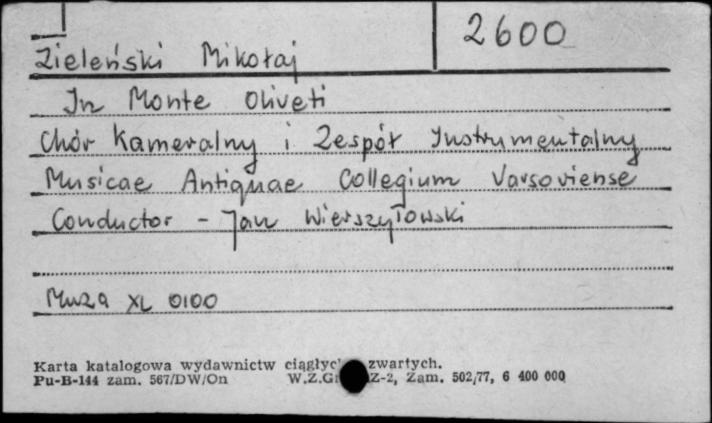 2600
Zieleński Mikołaj
In Monte Oliveti
Chór Kameralny i Zespół Instrumentalny
Musicae Antiquae Collegium Varsoviense
Conductor - Jan Wierszyłowski
Muza XL 0100
Karta katalogowa wydawnictw zwartych.
Pu-B-144 zam. 567/DW/On W.Z.Gr Z-2, Zam. 502/77, 6 400 000